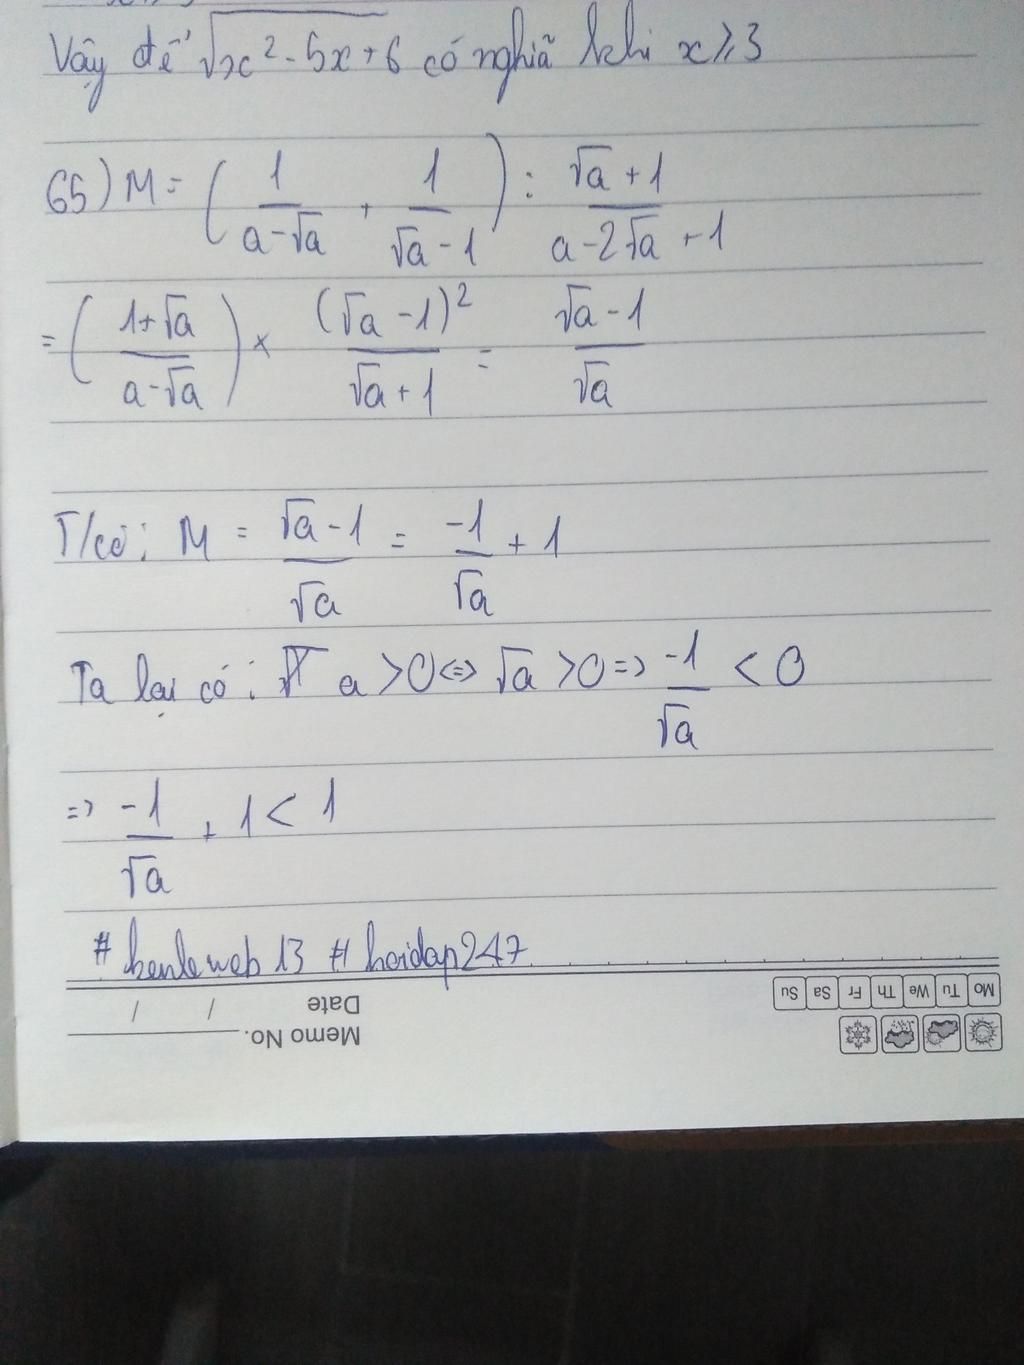 Vậy để √(x² - 5x + 6) có nghĩa khi x ≥ 3
65) M = (1/(a-√a) + 1/(√a - 1)) : (√a + 1)/(a - 2√a + 1)
= ((1+√a)/(a-√a)) × (√a - 1)²/(√a + 1) = (√a - 1)/√a
T/có: M = (√a - 1)/√a = -1/√a + 1
Ta lại có: a > 0 <=> √a > 0 => -1/√a < 0
=> -1/√a + 1 < 1
# kenleweb13 # hoidap247
Mo Tu We Th Fr Sa Su
Memo No.
Date / /